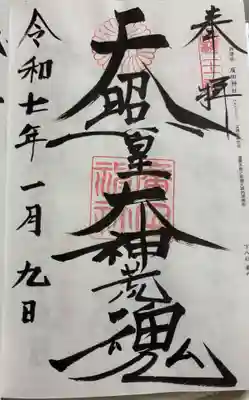 奉拝
天照皇大神荒魂
廣田神社
令和七年一月九日